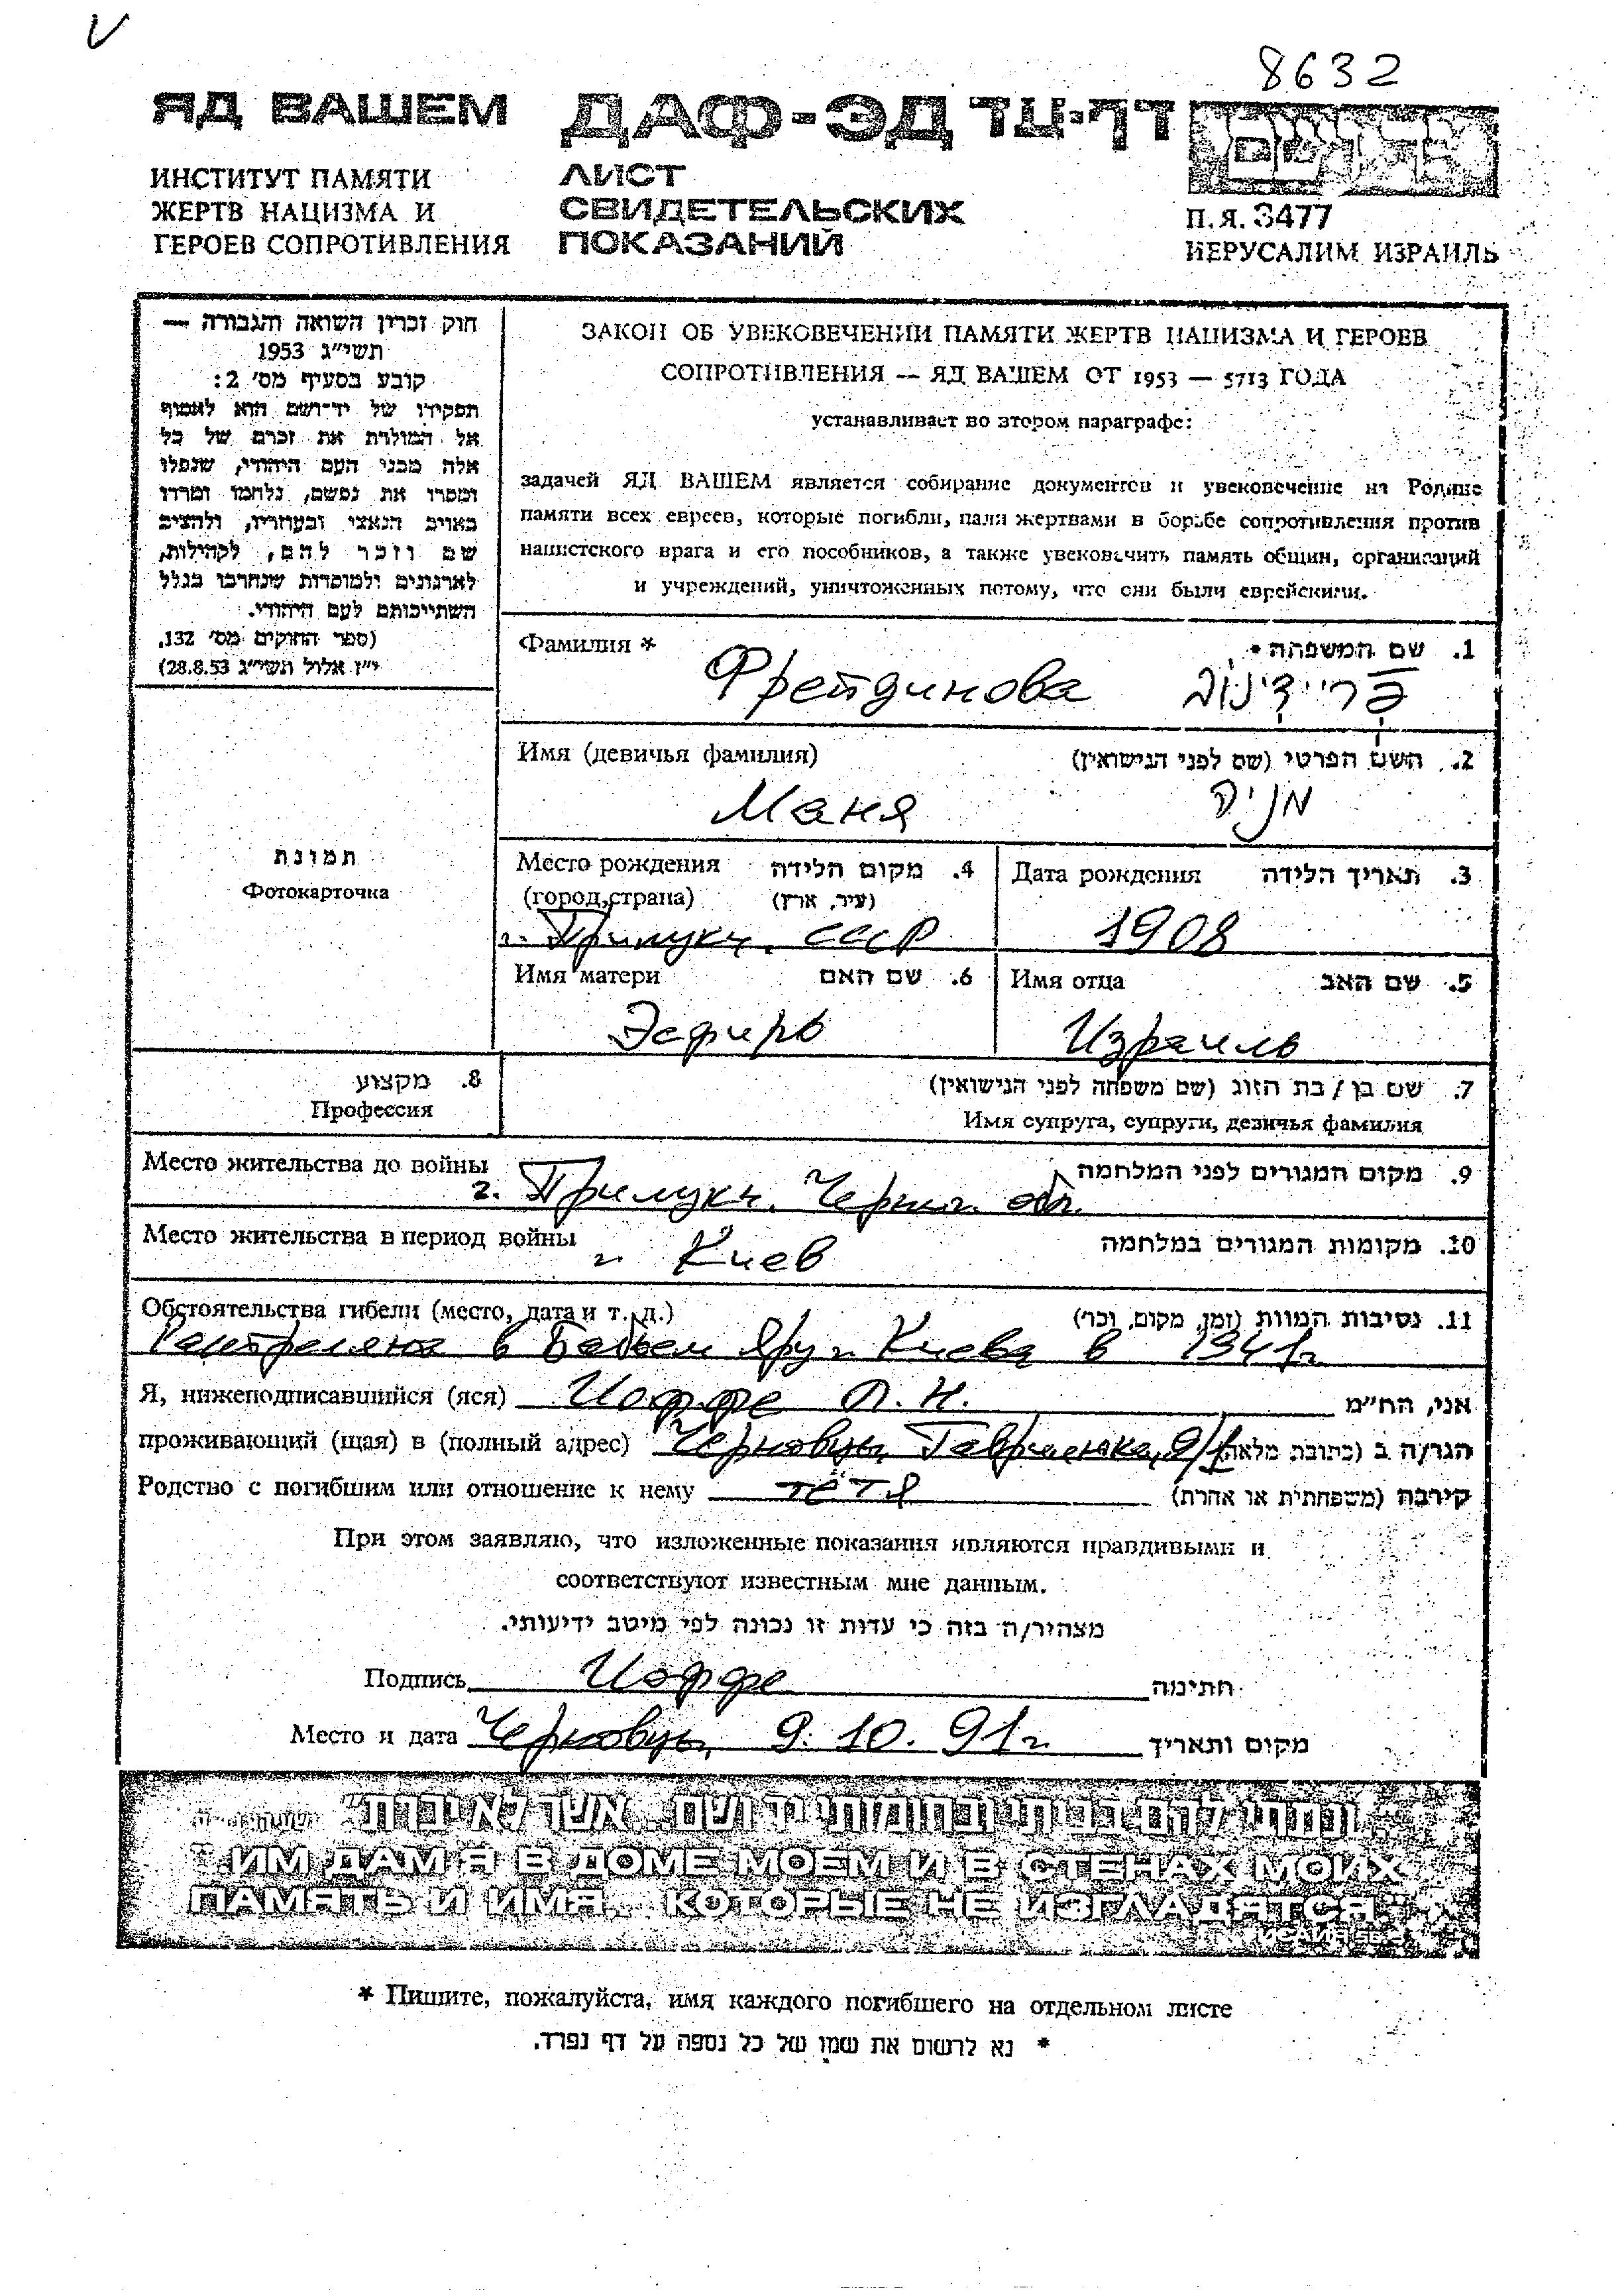 8632
ЯД ВАШЕМ
ДАФ-ЭД דף-עד
ИНСТИТУТ ПАМЯТИ
ЖЕРТВ НАЦИЗМА И
ГЕРОЕВ СОПРОТИВЛЕНИЯ
ЛИСТ
СВИДЕТЕЛЬСКИХ
ПОКАЗАНИЙ
П.Я. 3477
ИЕРУСАЛИМ ИЗРАИЛЬ
חוק זכרון השואה והגבורה —
תשי״ג 1953
קובע בסעיף מס׳ 2:
תפקידו של יד-ושם הוא לאסוף
אל המולדת את זכרם של כל
אלה מבני העם היהודי, שנפלו
ומסרו את נפשם, נלחמו ומרדו
באויב הנאצי ובעוזריו, ולהציב
שם וזכר להם, לקהילות,
לארגונים ולמוסדות שנחרבו בגלל
השתייכותם לעם היהודי.
(ספר החוקים מס׳ 132,
י״ז אלול תשי״ג 28.8.53)
ЗАКОН ОБ УВЕКОВЕЧЕНИИ ПАМЯТИ ЖЕРТВ НАЦИЗМА И ГЕРОЕВ
СОПРОТИВЛЕНИЯ — ЯД ВАШЕМ ОТ 1953 — 5713 ГОДА
устанавливает во втором параграфе:
задачей ЯД ВАШЕМ является собирание документов и увековечение на Родине
памяти всех евреев, которые погибли, пали жертвами в борьбе сопротивления против
нацистского врага и его пособников, а также увековечить память общин, организаций
и учреждений, уничтоженных потому, что они были еврейскими.
Фамилия * 1. שם המשפחה *
Фрейдинова פריידינוב
Имя (девичья фамилия) 2. השם הפרטי (שם לפני הנישואין)
Маня מניה
תמונת
Фотокарточка
Место рождения 4. מקום הלידה
(город,страна) (עיר, ארץ)
г. Прилуки, СССР
Дата рождения 3. תאריך הלידה
1908
Имя матери 6. שם האם
Эсфирь
Имя отца 5. שם האב
Израиль
8. מקצוע
Профессия
7. שם בן / בת הזוג (שם משפחה לפני הנישואין)
Имя супруга, супруги, девичья фамилия
Место жительства до войны 9. מקום המגורים לפני המלחמה
г. Прилуки. Черниг. обл.
Место жительства в период войны г. Киев 10. מקומות המגורים במלחמה
Обстоятельства гибели (место, дата и т. д.) 11. נסיבות המוות (זמן, מקום, וכו׳)
Расстреляна в Бабьем Яру г. Киева в 1941г
Я, нижеподписавшийся (яся) Иоффе Л. Н. אני, הח״מ
проживающий (щая) в (полный адрес) Черновцы, Гавриленка, 9/1 הגר/ה ב (כתובת מלאה)
Родство с погибшим или отношение к нему тётя קירבה (משפחתית או אחרת)
При этом заявляю, что изложенные показания являются правдивыми и
соответствуют известным мне данным.
מצהיר/ה בזה כי עדות זו נכונה לפי מיטב ידיעותי.
Подпись Иоффе חתימה
Место и дата Черновцы, 9. 10. 91г. מקום ותאריך
״ונתתי להם בביתי ובחומותי יד ושם... אשר לא יכרת״
"ИМ ДАМ Я В ДОМЕ МОЕМ И В СТЕНАХ МОИХ
ПАМЯТЬ И ИМЯ... КОТОРЫЕ НЕ ИЗГЛАДЯТСЯ"
* Пишите, пожалуйста, имя каждого погибшего на отдельном листе
* נא לרשום את שמו של כל נספה על דף נפרד.